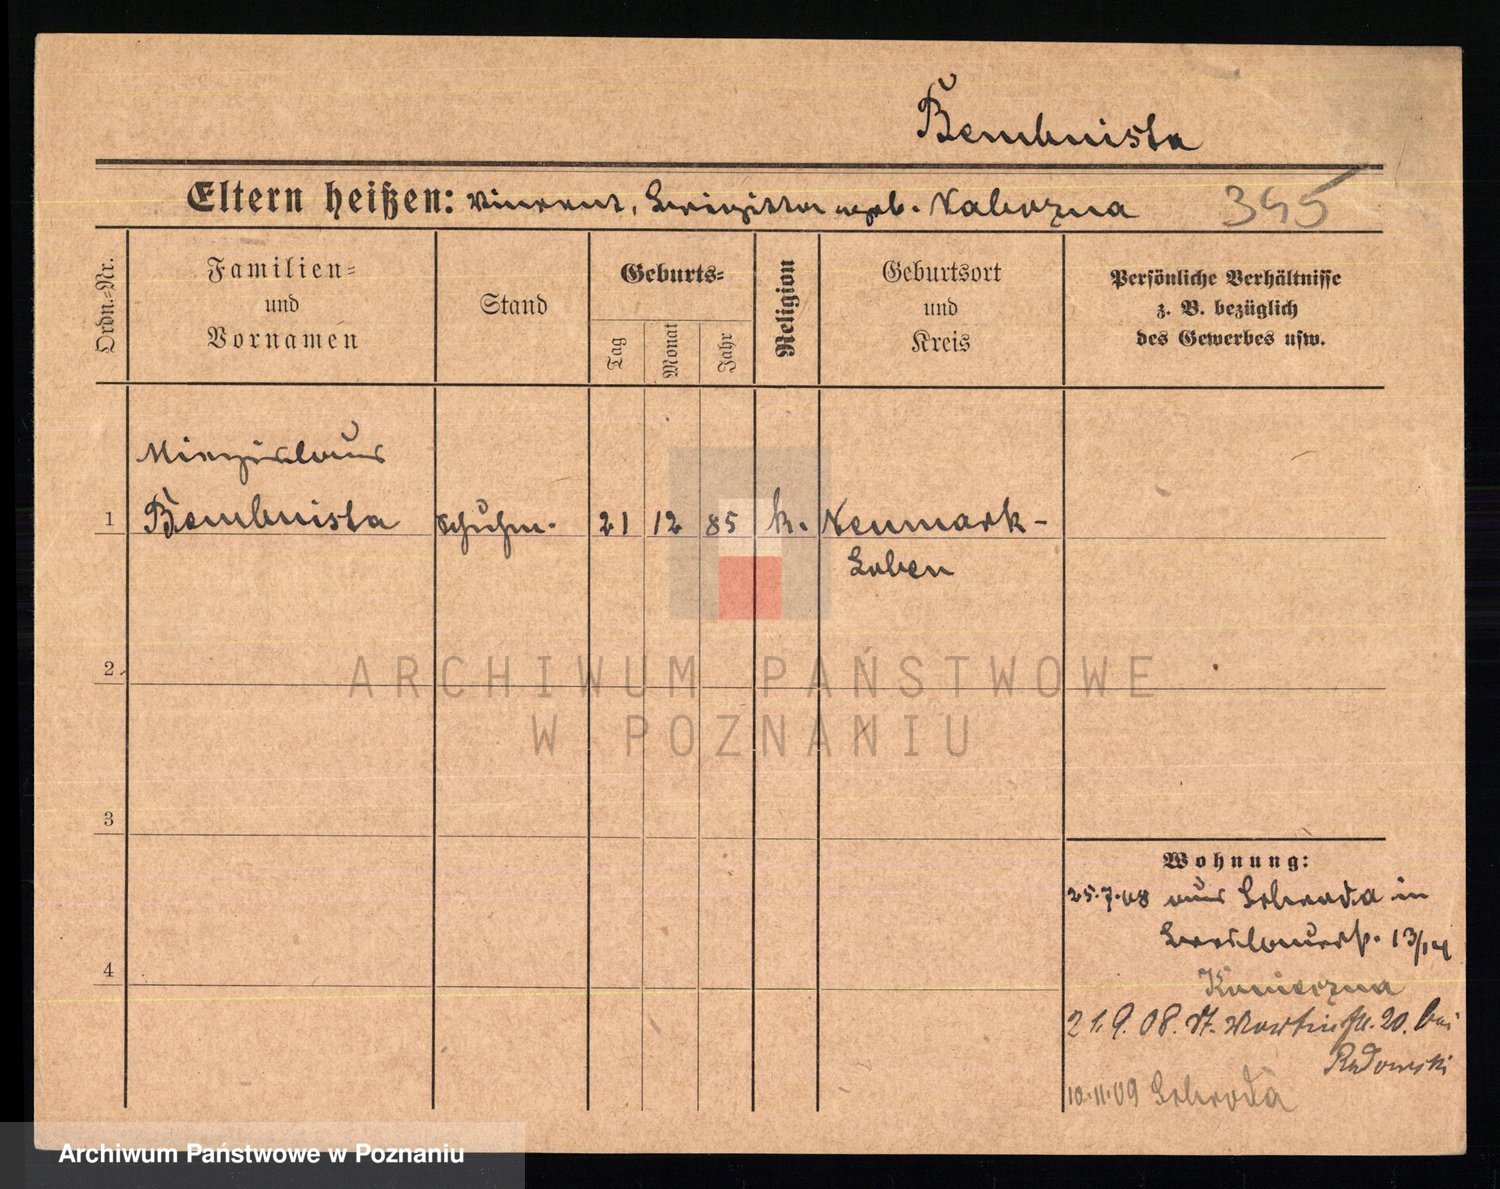 Bembnista
Eltern heißen: Vincent, Brigitta geb. Nabozna 395
Ordn.=Nr.
Familien=
und
Vornamen
Stand
Geburts=
Tag
Monat
Jahr
Religion
Geburtsort
und
Kreis
Persönliche Verhältnisse
z. B. bezüglich
des Gewerbes usw.
Miezislaus
1 Bembnista Schuhm. 21 12 85 k. Neumark-
Löben
2
3
4
Wohnung:
25.7.08 aus Schroda in
Breslauerstr. 13/14
Konieczna
21.9.08. St. Martinstr. 20. bei
Radomski
10.11.09 Schroda
ARCHIWUM PAŃSTWOWE
W POZNANIU
Archiwum Państwowe w Poznaniu